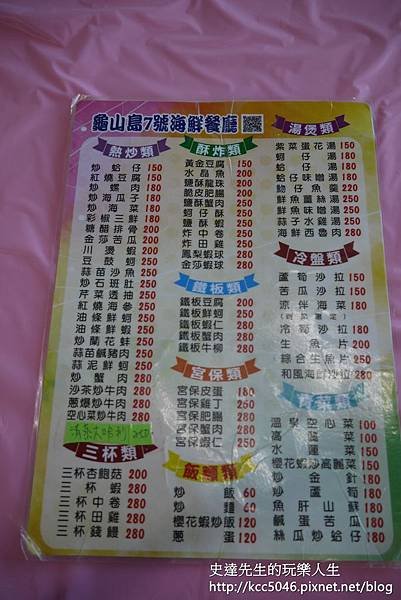 龜山島7號海鮮餐廳
熱炒類
炒蛤仔 150
紅燒豆腐 150
炒螺肉 150
炒海瓜子 180
炒海菜 180
彩椒三鮮 180
糖醋排骨 200
金莎苦瓜 200
川燙蝦 200
豆鼓蚵 200
蒜苗沙魚 250
炒石斑肚 250
芹菜透抽 250
紅燒海參 250
油條鮮蚵 250
油條鮮蝦 250
炒蘭花蚌 250
蒜苗鹹豬肉 250
蒜泥鮮蚵 250
炒蟹肉 280
沙茶炒牛肉 280
蔥爆炒牛肉 280
空心菜炒牛肉 280
三杯類
三杯杏鮑菇 200
三杯蝦 280
三杯中卷 280
三杯田雞 280
三杯錢鰻 280
酥炸類
黃金豆腐 150
水晶魚 200
鹽酥龍珠 200
脆皮肥腸 200
鹽酥蟹肉 200
蚵仔酥 200
炸中卷 250
炸田雞 250
鳳梨蝦球 280
金莎蝦球 280
鐵板類
鐵板豆腐 200
鐵板鮮蚵 250
鐵板蝦仁 280
鐵板蟹肉 280
鐵板牛柳 280
宮保類
宮保皮蛋 180
宮保雞丁 250
宮保肥腸 250
宮保蟹肉 280
宮保蝦仁 280
飯麵類
炒飯 60
炒麵 60
櫻花蝦炒飯 120
蔥蛋 120
湯煲類
紫菜蛋花湯 150
蚵仔湯 180
蛤仔湯 180
蛤仔味噌湯 180
魩仔魚羹 220
鮮魚絲湯 250
鮮魚味噌湯 250
海鮮西魯肉 250
冷盤類
蘆筍沙拉 150
苦瓜沙拉 150
涼伴海菜 180
冷筍沙拉 180
生魚片 250
綜合生魚片 250
和風海鮮沙拉 280
溫泉空心菜 100
高麗菜 100
水蓮 100
櫻花蝦高麗菜 150
炒金針 180
炒蘆筍 180
魚肝山蘇 180
鹹蛋苦瓜 180
絲瓜炒蛤仔 180
史達先生的玩樂人生
http://kcc5046.pixnet.net/blog